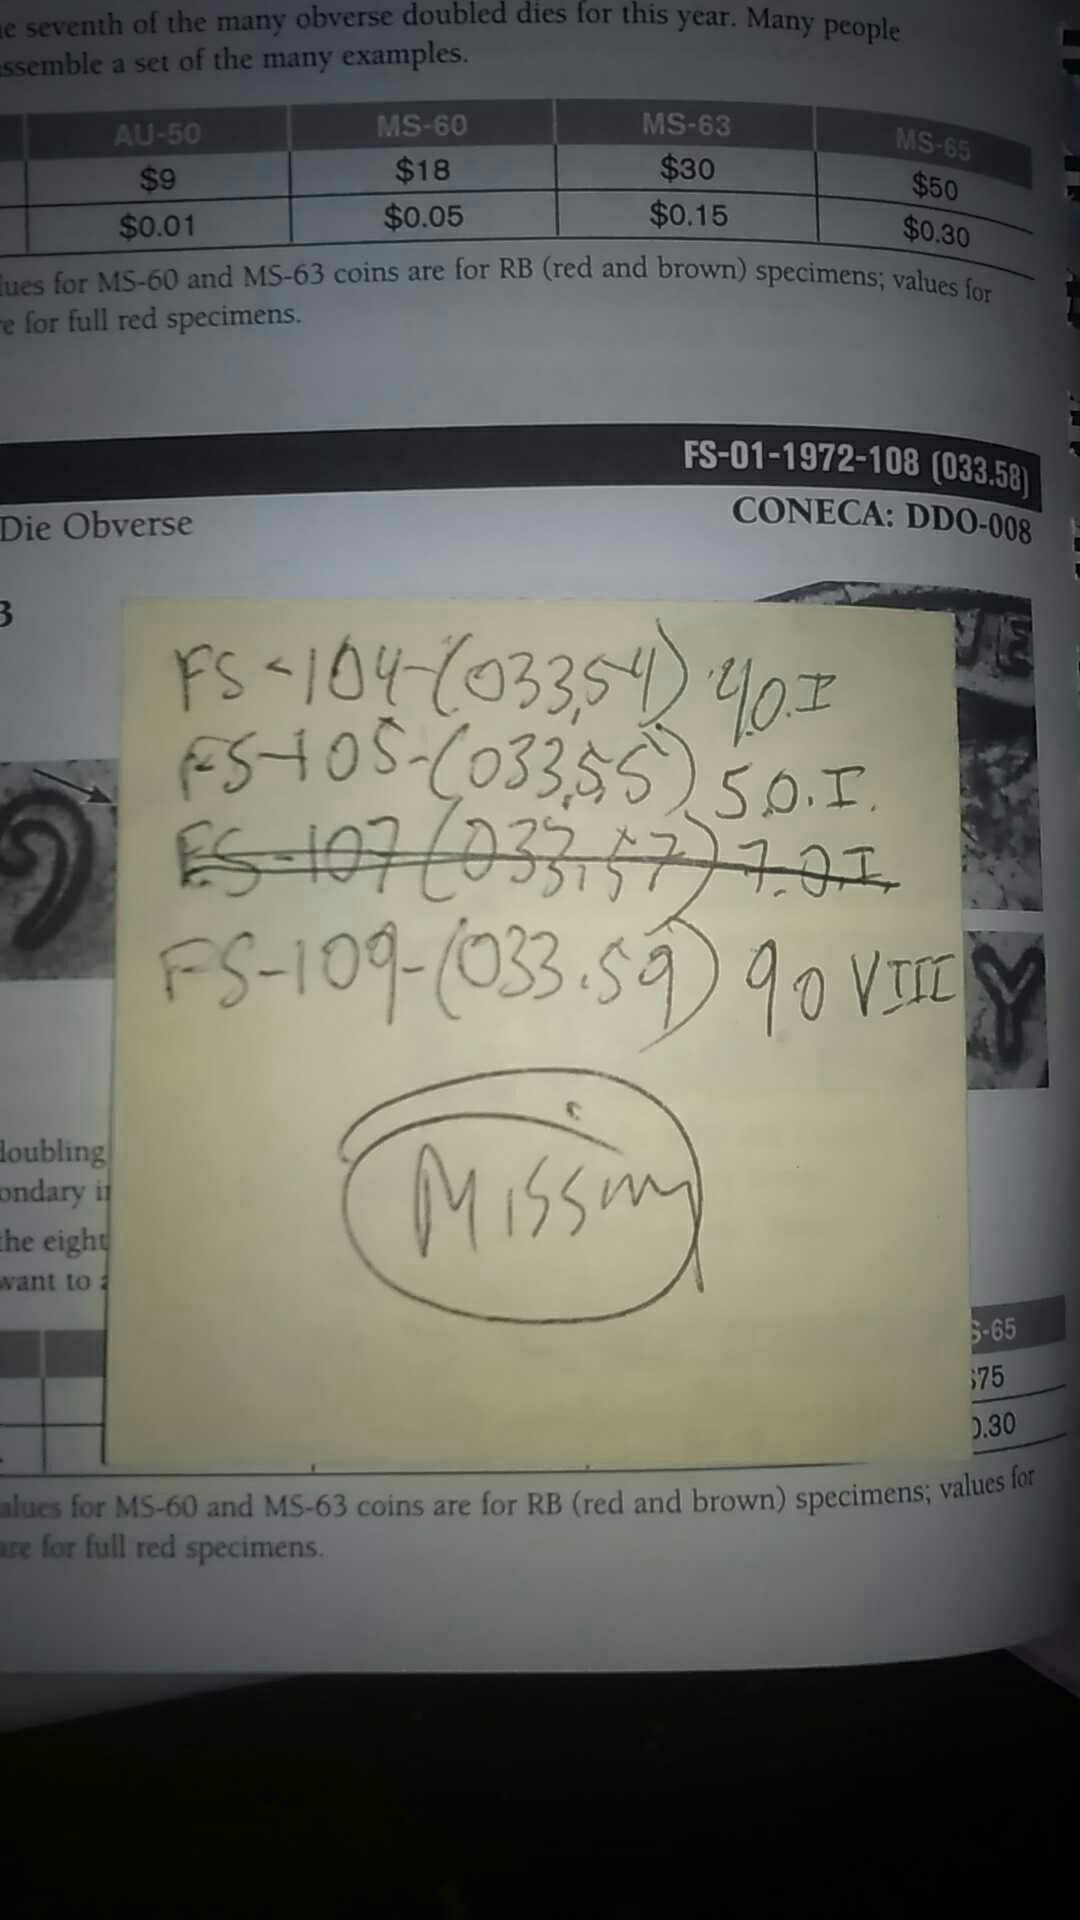 e seventh of the many obverse doubled dies for this year. Many people
ssemble a set of the many examples.
AU-50 MS-60 MS-63 MS-65
$9 $18 $30 $50
$0.01 $0.05 $0.15 $0.30
lues for MS-60 and MS-63 coins are for RB (red and brown) specimens; values for
e for full red specimens.
FS-01-1972-108 (033.58)
Die Obverse CONECA: DDO-008
3
FS-104-(033,54) 4.O.I
FS-105-(033,55) 5.O.I.
FS-107(033,57) 7.O.I.
FS-109-(033.59) 90 VIII
Missing
doubling
ondary i
the eight
want to a
S-65
$75
0.30
alues for MS-60 and MS-63 coins are for RB (red and brown) specimens; values for
are for full red specimens.